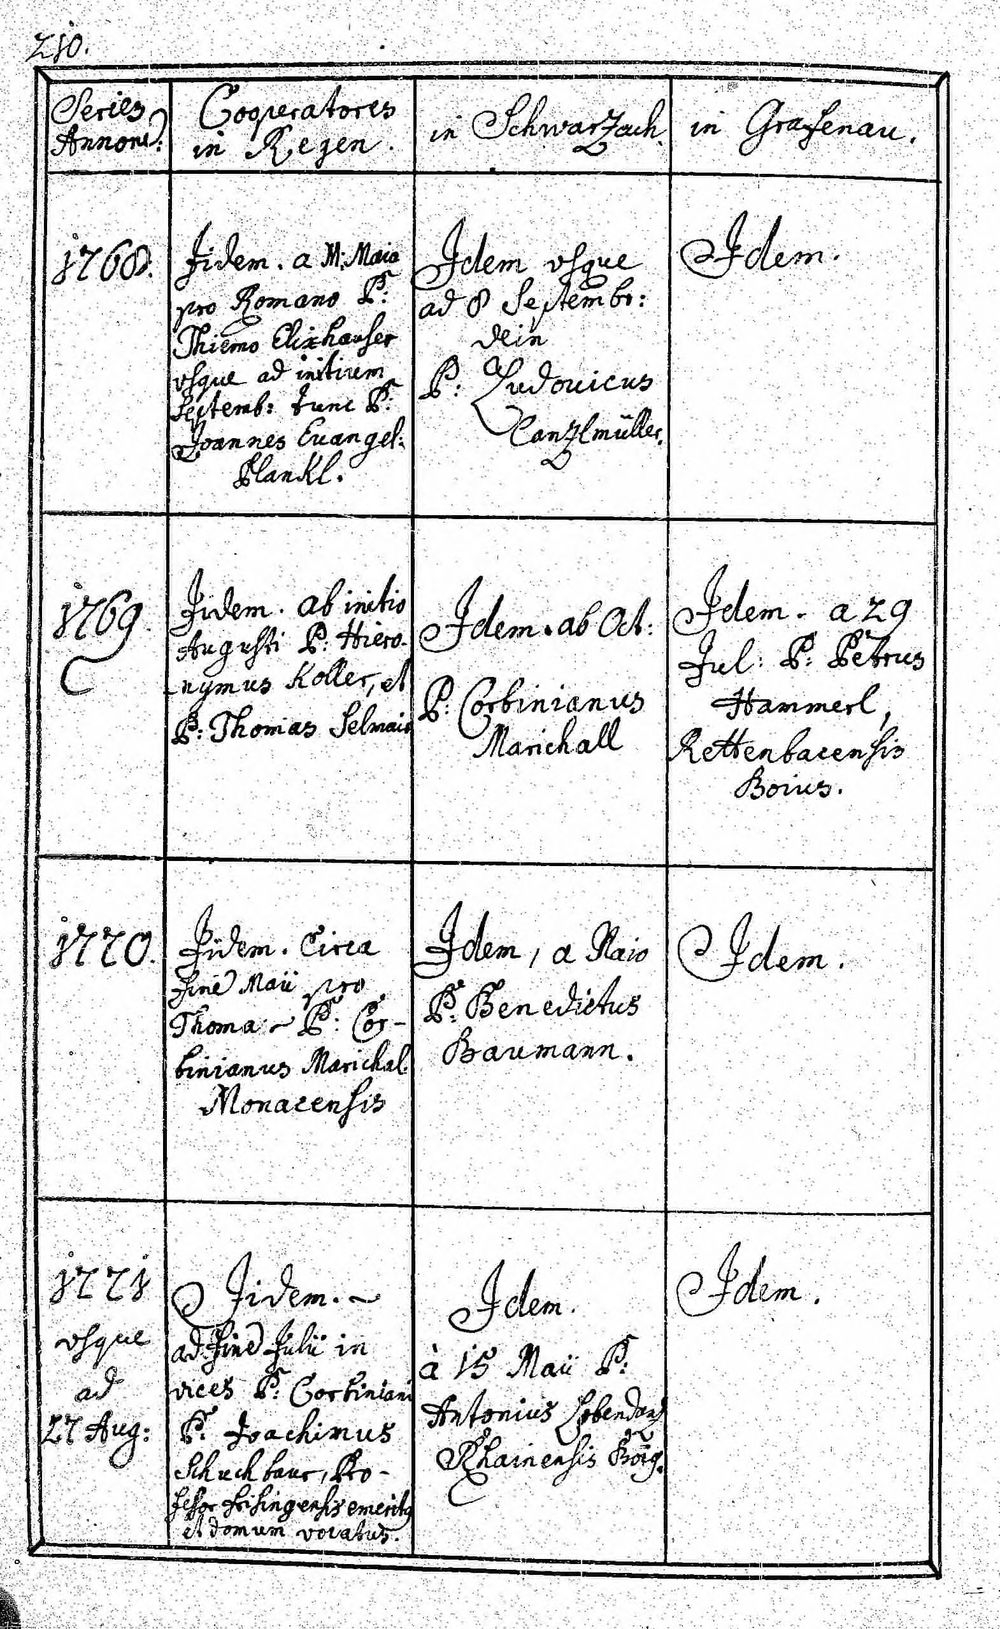 210.
Series
Annorū:
Cooperatores
in Regen.
in Schwarzach.
in Grafenau.
1768.
Jidem. a M: Maio
pro Romano P:
Thiemo Elixhauser
vsque ad initium
Septemb: tunc P:
Joannes Euangel:
Plankl.
Idem vsque
ad 8 Septembr:
dein
P: Ludouicus
Canzlmüller.
Idem.
1769.
Jidem. ab initio
Augusti P: Hiero-
nymus Koller, et
P: Thomas Selmair
Idem. ab Oct:
P: Corbinianus
Marichall
Idem. a 29
Jul: P: Petrus
Hammerl,
Rettenbacensis
Boius.
1770.
Jidem. Circa
fine Maii pro
Thoma P: Cor-
binianus Marichal.
Monacensis
Idem, a Maio
P: Benedictus
Baumann.
Idem.
1771
vsque
ad
27 Aug:
Jidem.
ad fine Julii in
vices P: Corbiniani
P: Joachimus
Schuchbaur, Pro-
fessor frisingensis emeritus
et domum vocatus.
Idem.
à 15 Maii P:
Antonius
Rhainensis Boig.
Idem.